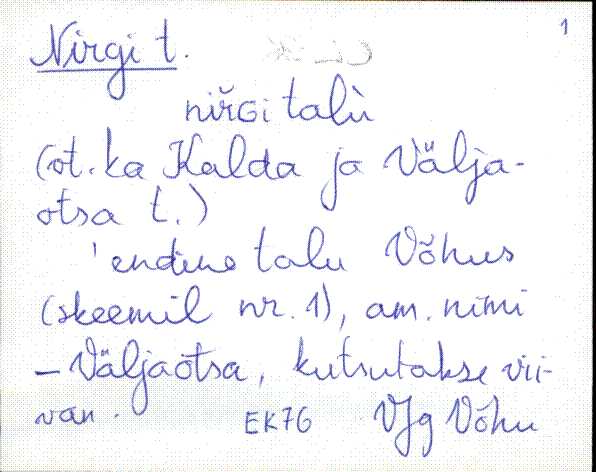 1
Nirgi t.
niřGi talù
(vt. ka Kalda ja Välja-
otsa t.)
'endine talu Võhus
(skeemil nr. 1), am. nimi
– Väljaotsa, kutsutakse vii-
EK76 VJg Võhu